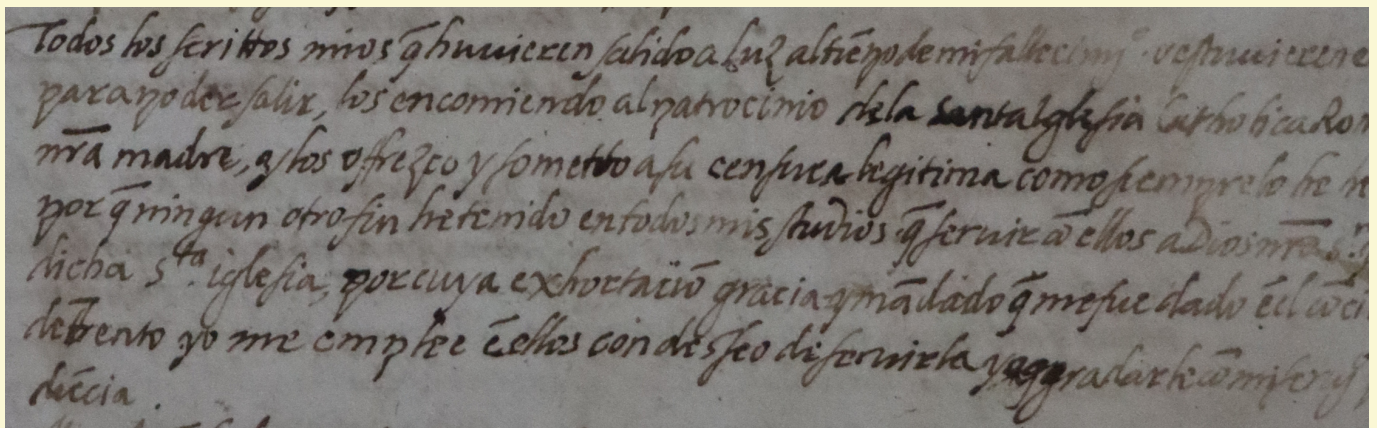 Todos los scrittos mios q̃ huuieren salido a luz al tiẽpo de mi fallecimj.º o estuuieren e
para poder salir, los encomiendo al patrocinio de la santa Iglesia Catholica Rom
nr̃a madre, y los offrezco y sometto a su censura legitima como siempre lo he he
por q̃ ningun otro fin he tenido en todos mis studios q̃ seruir cõ ellos a Dios nr̃o s.ʳ
dicha S.ᵗᵃ iglesia, por cuya exhortaciõ gracia y mãdado q̃ me fue dado ẽel cõci
de Trento yo me emplee ẽ ellos con desseo de seruirla y aggradarle cõ mi
diẽcia.